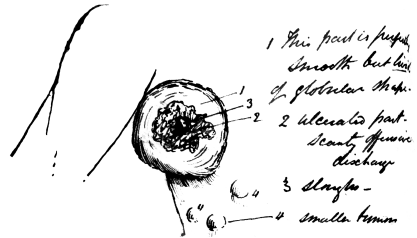 1 This part is perfectly
smooth but livid
of globular shape.
2 ulcerated part.
scanty offensive
discharge
3 sloughs —
4 smaller tumors
1
3
2
4
4